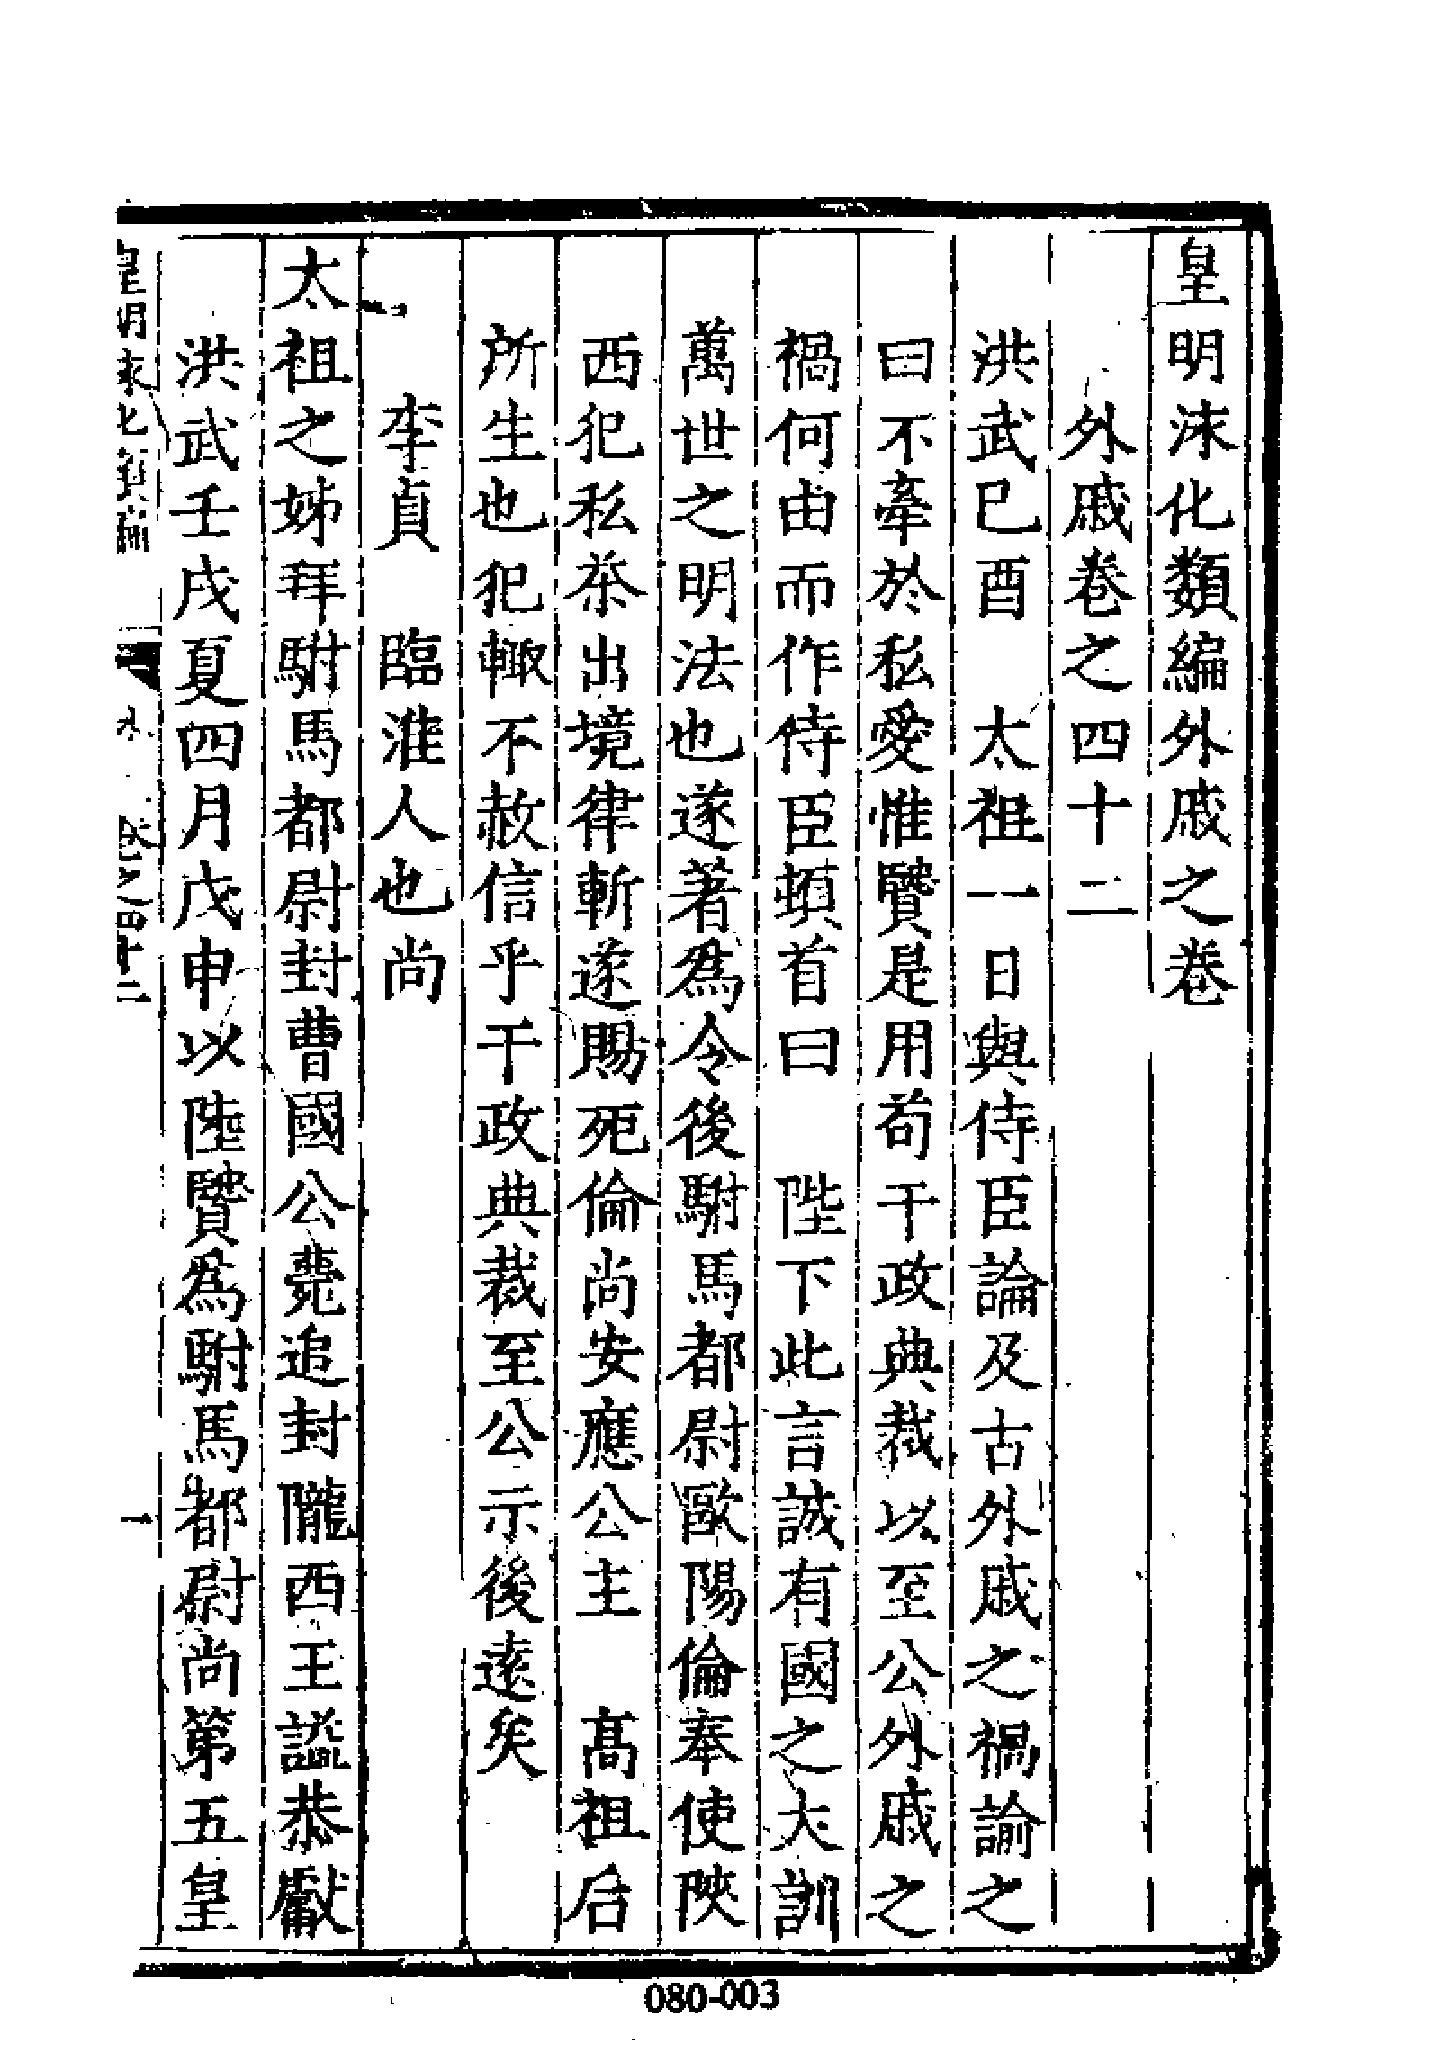 皇明泳化類編外戚之卷
外戚卷之四十二
洪武己酉　太祖一日與侍臣論及古外戚之禍諭之
曰不牽於私愛惟賢是用苟干政典裁以至公外戚之
禍何由而作侍臣頓首曰　陛下此言誠有國之大訓
萬世之明法也遂著爲令後駙馬都尉歐陽倫奉使陝
西犯私茶出境律斬遂賜死倫尚安應公主　高祖后
所生也犯輙不赦信乎干政典裁至公示後遠矣
李貞　臨淮人也尚
太祖之姊拜駙馬都尉封曹國公薨追封隴西王謚恭獻
洪武壬戌夏四月戊申以陸賢爲駙馬都尉尚第五皇
皇明泳化類編　外　卷之四十二　一
080-003